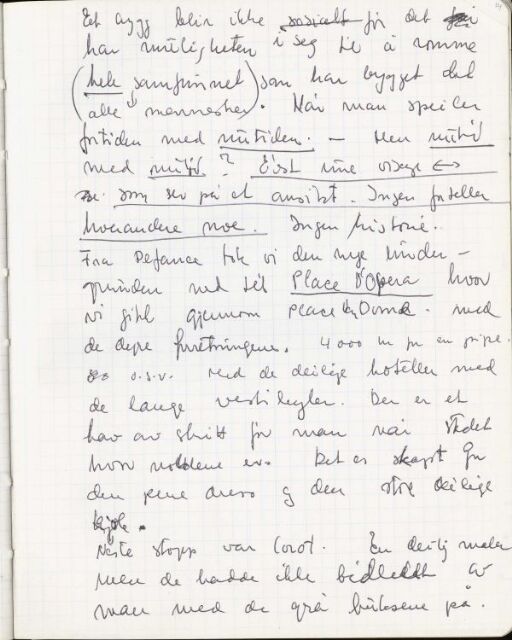 Et bygg blir ikke sosialt før det
har muligheten i seg til å romme
(hele samfunnet som har bygget det
alle mennesker). Når man speiler
fortiden med nutiden. — Men nutid
med nutid? C'est une visage ↔
som ser på et ansikt. Ingen forteller
hverandre noe. Ingen historie.
Fra Defance tok vi den nye under-
grunden ned til Place d'Opera hvor
vi gikk gjennom place Vendome. med
de dyre forretningene. 4000 kr for en pipe.
o.s.v. Med de deilige hoteller med
de lange vestibyler. Der er et
hav av skritt før man når stedet
hvor er. Det er skapt for
den pene dress og den store deilige
kjole.
Neste stopp var Corot. En deilig maler
men de hadde ikke bildet av
man med de grå buksene på.